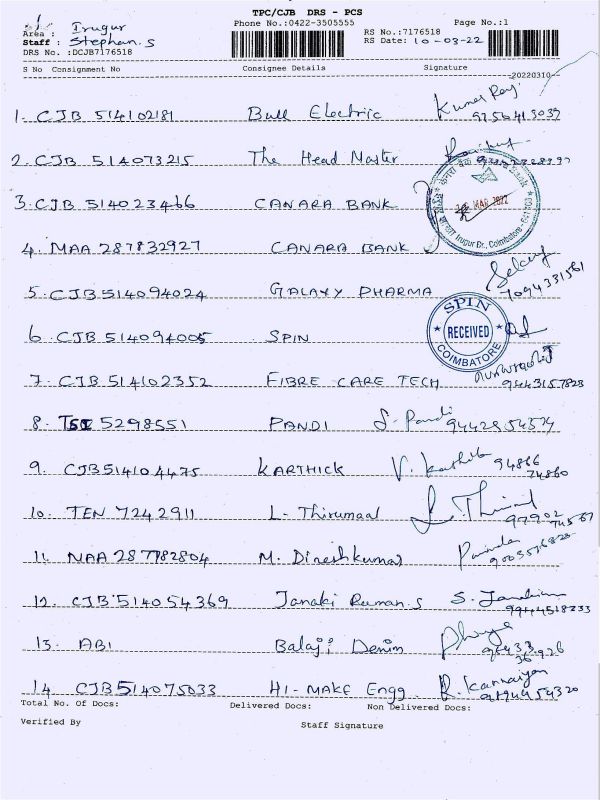 TPC/CJB DRS - PCS
Phone No.:0422-3505555 Page No.:1
Area : Irugur
Staff : Stephan.S
RS No.:7176518
DRS No. :DCJB7176518
RS Date: 10-03-22
S No Consignment No Consignee Details Signature
20220310
1. CJB 514102181 Bull Electric Kumar Raj
2. CJB 514073215 The Head Master
3. CJB 514023466 CANARA BANK
4. MAA 287832927 CANARA BANK
Irugur Br., Coimbatore - 641 103
5. CJB 514094024 GALAXY PHARMA Selvaraj
7094331561
6. CJB 514094005 SPIN
SPIN
RECEIVED
COIMBATORE
7. CJB 514102352 FIBRE CARE TECH
9443157828
8. 5298551 PANDI S. Pandi
9442854574
9. CJB514104475 KARTHICK V. Karthik 94866
74860
10. TEN 7242911 L. Thirumaal L. Thirumal
97902
74567
11. M. Dineshkumar
12. CJB 514054369 Janaki Raman.S S. Janakiram
9944518233
13. ABI Balaji Denim
14. CJB514075033 HI-MAKE Engg. R. Kannaiyan
Total No. Of Docs: Delivered Docs: Non Delivered Docs:
Verified By Staff Signature